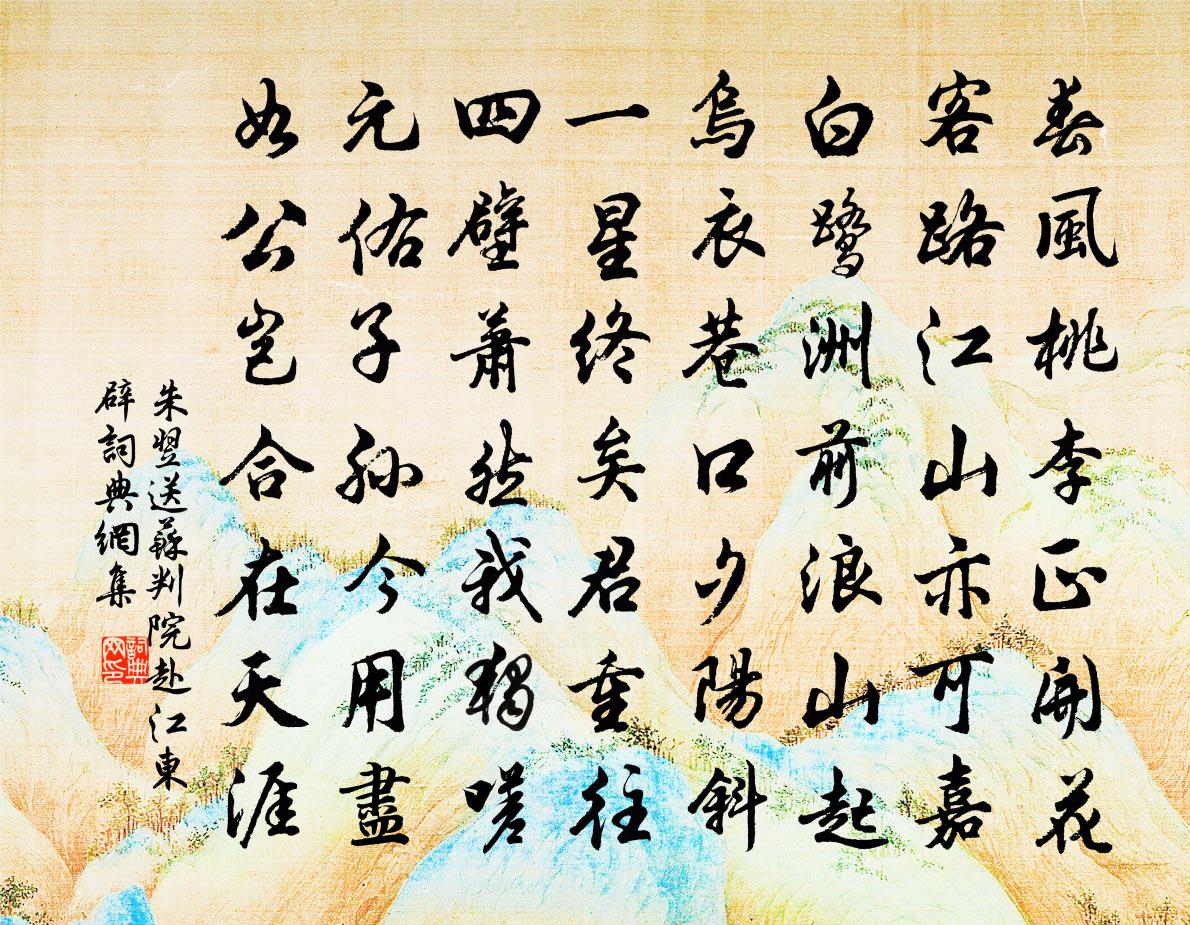 春風桃李正開花
客路江山亦可嘉
白鷺洲前浪山起
烏衣巷口夕陽斜
一星終矣君重往
四壁蕭然我獨嗟
元佑子孫今用盡
如公豈合在天涯
朱翌送蘇判院赴江東
辟詞典網集
詞典网印